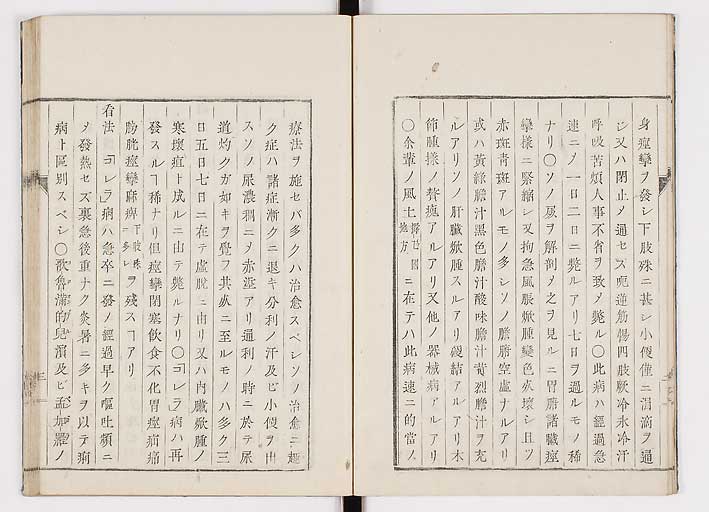 身痙攣ヲ發シ下肢殊ニ甚シ小便僅ニ涓滴ヲ通
シ又ハ閉止メ通セズ吃逆筋惕四肢厥冷氷冷汗
呼吸苦煩人事不省ヲ致メ斃ル〇此病ハ經過急
速ニメ一日二日ニ斃ルアリ七日ヲ過ルモノ稀
ナリ〇ソノ屍ヲ解剖メ之ヲ見ルニ胃膽諸臟痙
攣様ニ緊縮シ又拘急風脹焮腫變色敗壞シ且ツ
赤斑青斑アルモノ多シソノ膽脬空虚ナルアリ
或ハ黄緑膽汁黒色膽汁酸味膽汁苛烈膽汁ヲ充
ルアリソノ肝臟焮腫スルアリ硬結アルアリ木
節腫様ノ贅瘣アルアリ又他ノ器械病アルアリ
〇余輩ノ風土 地方 ニ在テハ此病速ニ的當ノ
療法ヲ施セバ多クハ治愈スベシソノ治愈ニ趣
ク症ハ諸症漸クニ退キ分利ノ汗及ビ小便ヲ出
スソノ尿濃稠ニメ赤渣アリ通利ノ時ニ於テ尿
道灼クガ如キヲ覺ヲ其死ニ至ルモノハ多ク三
日五日七日ニ在テ虚脱ニ由リ又ハ内臟焮腫ノ
寒壞疽ト成ルニ由テ斃ルナリ〇「コレラ」病ハ再
發スルヿ稀ナリ但痙攣閉塞飲食不化胃痙痛痛
膀胱痙攣麻痺 下肢殊ニ多シ ヲ殘スヿアリ
看法 「コレラ」病ハ急卒ニ發メ經過早ク嘔吐頻ニ
メ發熱セズ裏急後重ナク炎暑ニ多キヲ以テ痢
病ト區別スベシ〇歌魯蒲的兒濱及ビ孟加臘ノ
三